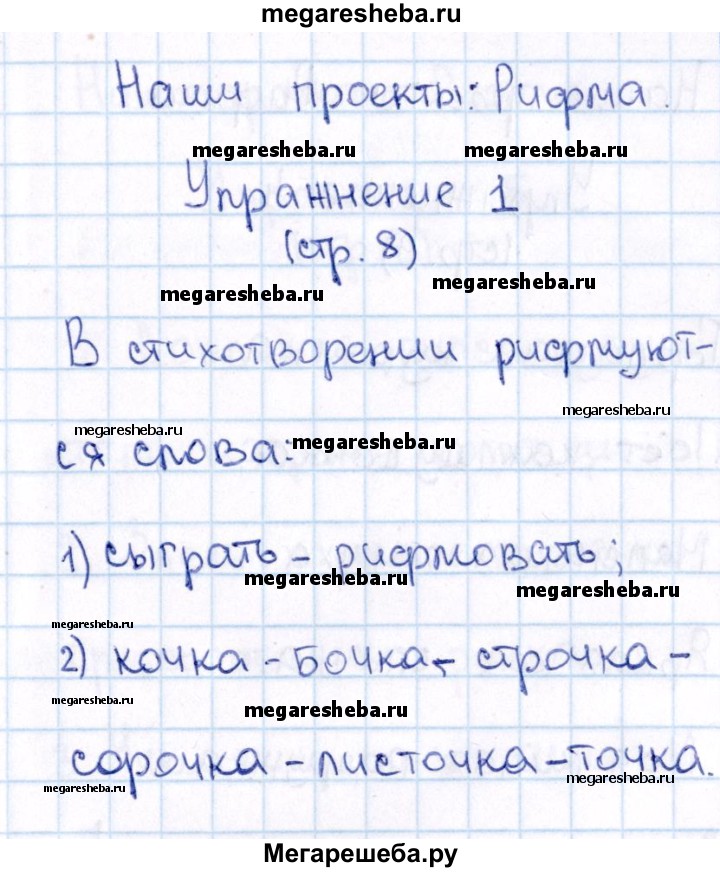 megaresheba.ru
Наши проекты: Рифма.
megaresheba.ru megaresheba.ru
Упражнение 1
(стр. 8)
megaresheba.ru megaresheba.ru
В стихотворении рифмуют-
megaresheba.ru megaresheba.ru
ся слова: megaresheba.ru
1) сыграть – рифмовать;
megaresheba.ru megaresheba.ru
megaresheba.ru
2) кочка – бочка – строчка –
megaresheba.ru megaresheba.ru
сорочка – листочка – точка.
megaresheba.ru megaresheba.ru
Мегарешеба.ру